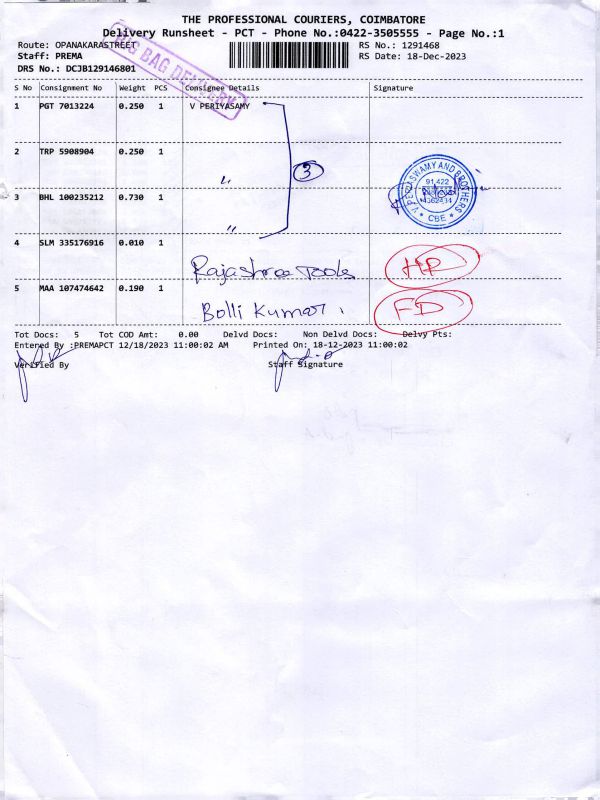 THE PROFESSIONAL COURIERS, COIMBATORE
Delivery Runsheet - PCT - Phone No.:0422-3505555 - Page No.:1
Route: OPANAKARASTREET
RS No.: 1291468
Staff: PREMA
RS Date: 18-Dec-2023
DRS No.: DCJB129146801
BIG BAG DELIVERY
S No Consignment No Weight PCS Consignee Details Signature
1 PGT 7013224 0.250 1 V PERIYASAMY
2 TRP 5908904 0.250 1 "
3
3 BHL 100235212 0.730 1 "
V.PERIASWAMY AND BROTHERS
CBE
4 SLM 335176916 0.010 1 Rajashree Tools HR
5 MAA 107474642 0.190 1 Bolli Kumar. FD
Tot Docs: 5 Tot COD Amt: 0.00 Delvd Docs: Non Delvd Docs: Delvy Pts:
Entered By :PREMAPCT 12/18/2023 11:00:02 AM Printed On: 18-12-2023 11:00:02
Verified By Staff Signature